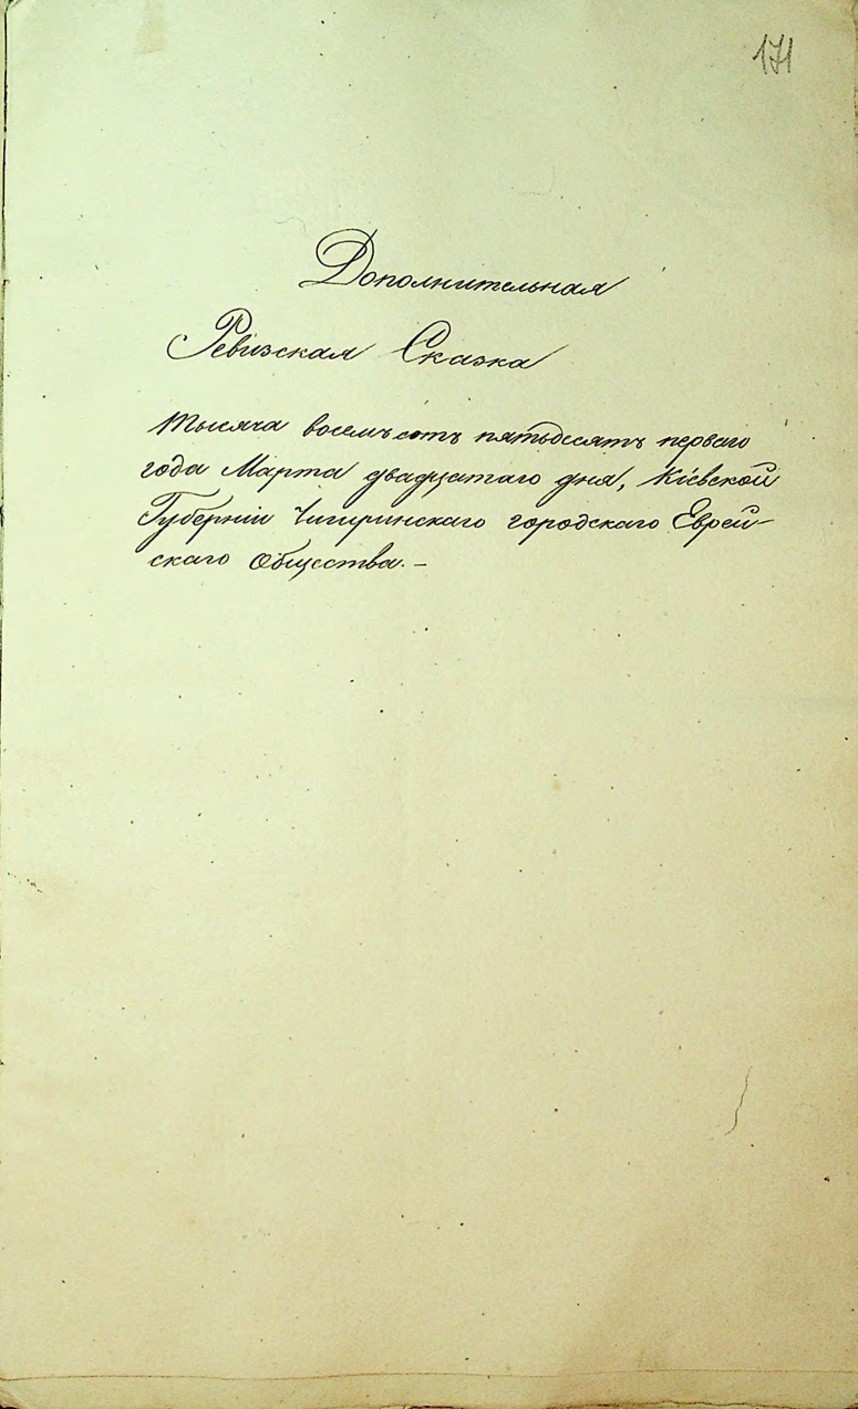 171
Дополнительная
Ревизская Сказка
Тысяча восемьсотъ пятьдесятъ перваго
года Марта двадцатаго дня, Кіевской
Губерніи Чигиринскаго городскаго Еврей-
скаго Общества. –